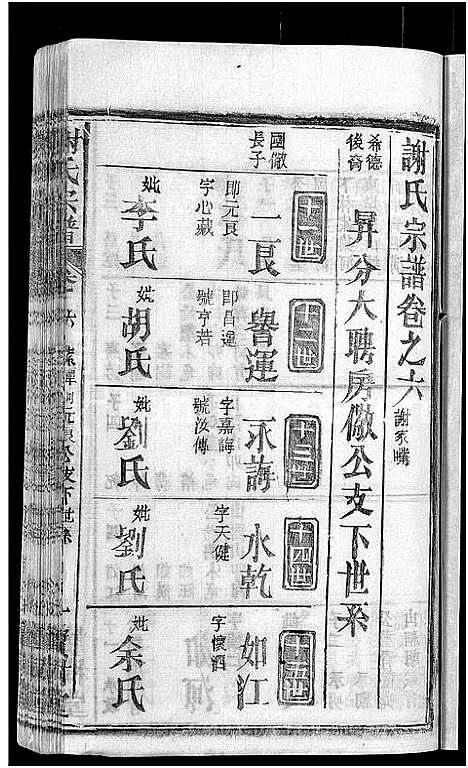 謝氏宗譜卷之六
謝家嘴
希德後裔
昇分大聘房傲公支下世系
十一世
國傲長子
一良
即元良
字心藏
妣李氏
十二世
譽運
即昌運
號亨若
妣胡氏
十三世
永誨
字嘉誨
號汝傳
妣劉氏
十四世
水乾
字天健
妣劉氏
十五世
如江
字懷泗
妣余氏
謝氏宗譜
卷之六